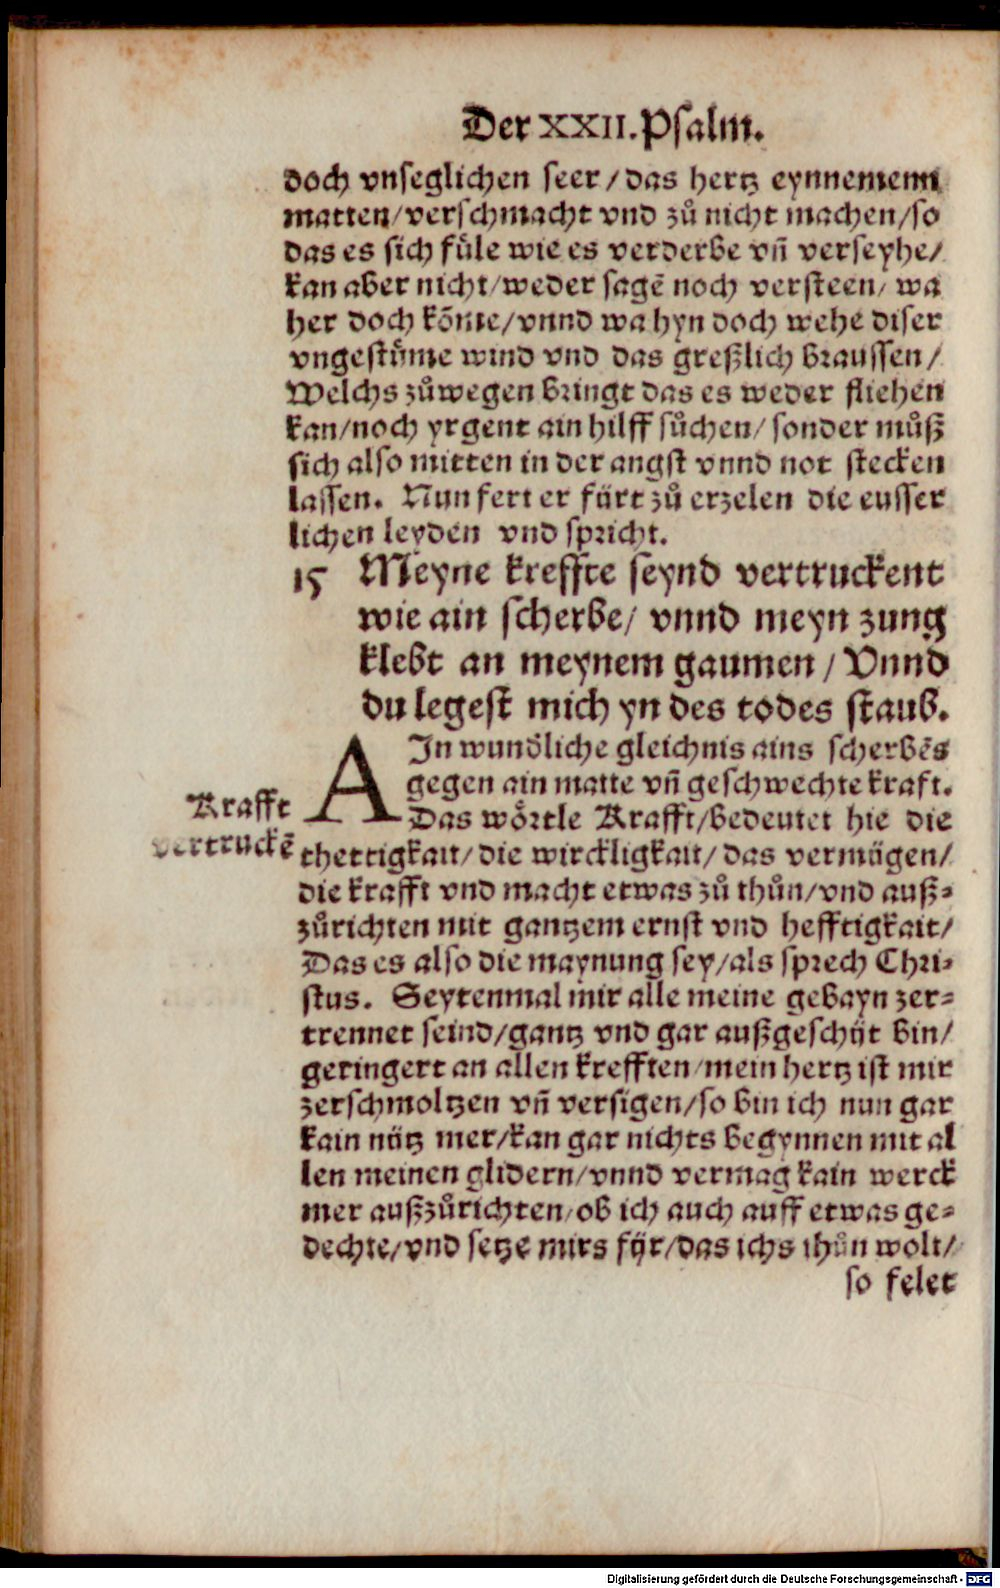 Der XXII. Psalm.
doch vnseglichen seer / das hertz eynnemenn
matten / verschmacht vnd zů nicht machen / so
das es sich fůle wie es verderbe vñ verseyhe /
kan aber nicht / weder sagē noch versteen / wa
her doch kõme / vnnd wa hyn doch wehe diser
vngestůme wind vnd das greßlich braussen /
Welchs zůwegen bringt das es weder fliehen
kan / noch yrgent ain hilff sůchen / sonder můß
sich also mitten in der angst vnnd not stecken
lassen. Nun fert er fürt zů erzelen die eusser
lichen leyden vnd spricht.
15 Meyne kreffte seynd vertruckent
wie ain scherbe / vnnd meyn zung
klebt an meynem gaumen / Vnnd
du legest mich yn des todes staub.
AIn wundliche gleichnis ains scherbēs
gegen ain matte vñ geschwechte kraft.
Krafft
vertruckē
Das wörtle Krafft / bedeutet hie die
thettigkait / die wirckligkait / das vermügen /
die krafft vnd macht etwas zů thůn / vnd auß-
zůrichten mit gantzem ernst vnd hefftigkait /
Das es also die maynung sey / als sprech Chri-
stus. Seytenmal mir alle meine gebayn zer-
trennet seind / gantz vnd gar außgeschüt bin /
geringert an allen krefften / mein hertz ist mir
zerschmoltzen vñ versigen / so bin ich nun gar
kain nütz mer / kan gar nichts begynnen mit al
len meinen glidern / vnnd vermag kain werck
mer außzůrichten / ob ich auch auff etwas ge-
dechte / vnd setze mirs für / das ichs thůn wolt /
so felet
Digitalisierung gefördert durch die Deutsche Forschungsgemeinschaft - DFG